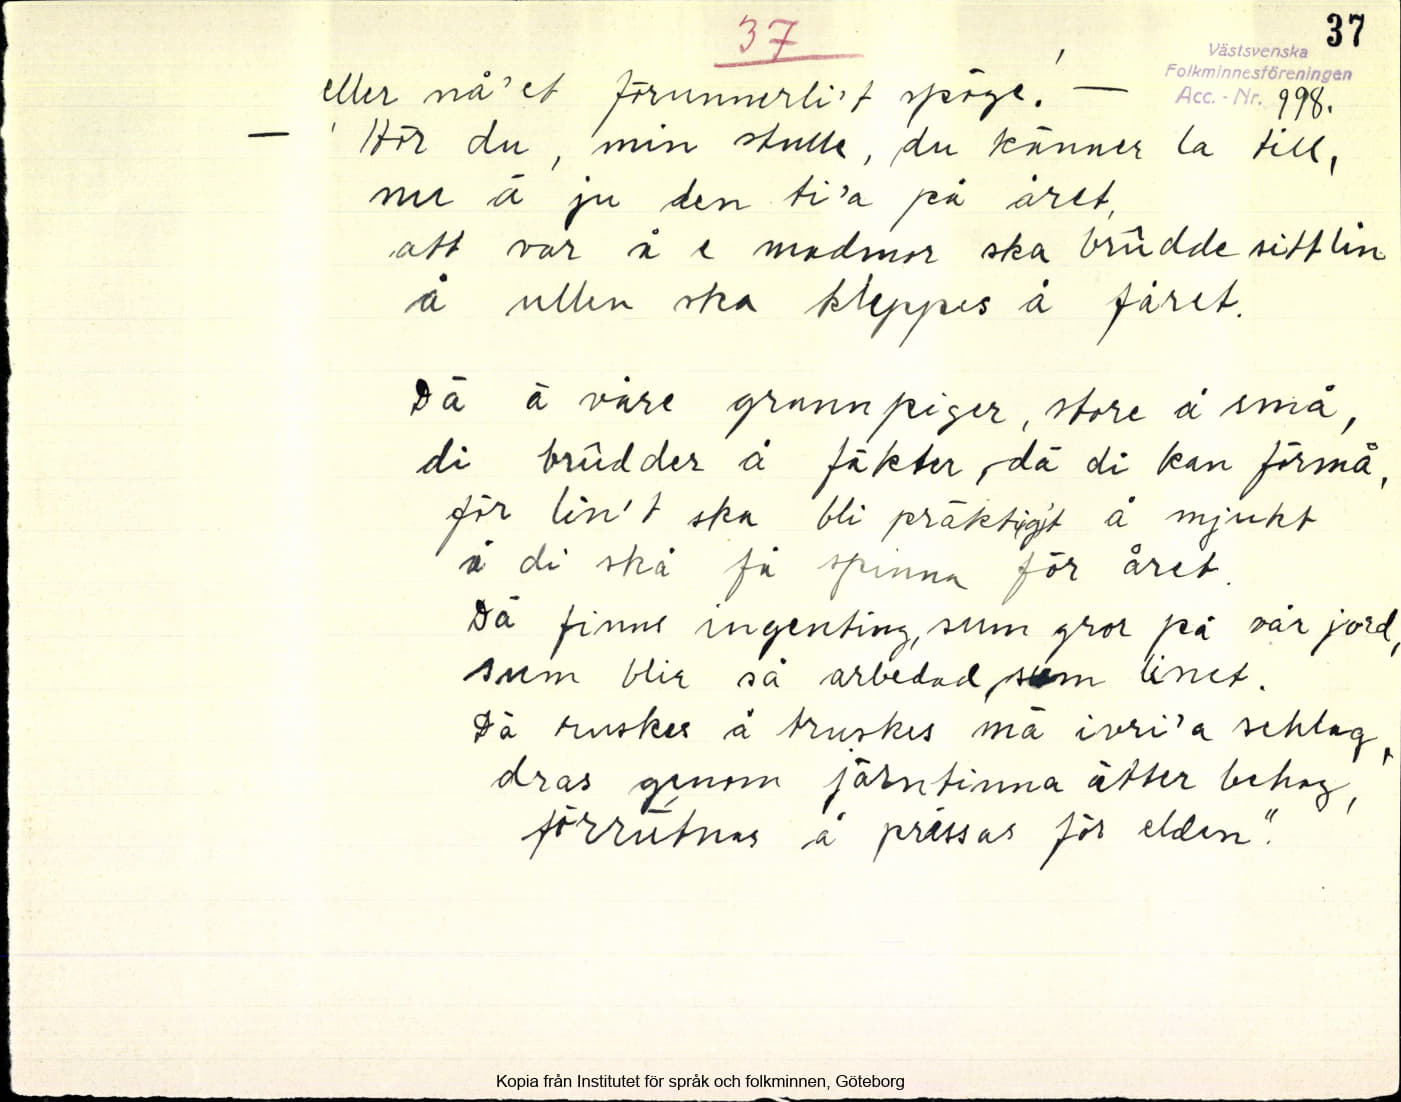 37
37
Västsvenska
Folkminnesföreningen
Acc. - Nr. 998.
eller nå'et förunnerli't spöge.' —
— 'Hör du, min stulle, du känner la till,
nu ä ju den ti'a på året,
att var å e madmor ska brûdde sitt lin
å ullen ska kleppes å fåret.
Dä ä våre grannpiger, store å små,
di brûdder å fäkter, dä di kan förmå,
för lin't ska bli präktigt å mjukt
å di skå få spinna för året.
Dä finns ingenting, sum gror på vår jord,
sum blir så arbedad, sum linet.
Dä ruskes å truskes mä ivri'a schlag,
dras genom järntinna ätter behag,
förrûtnas å pressas för elden".
Kopia från Institutet för språk och folkminnen, Göteborg